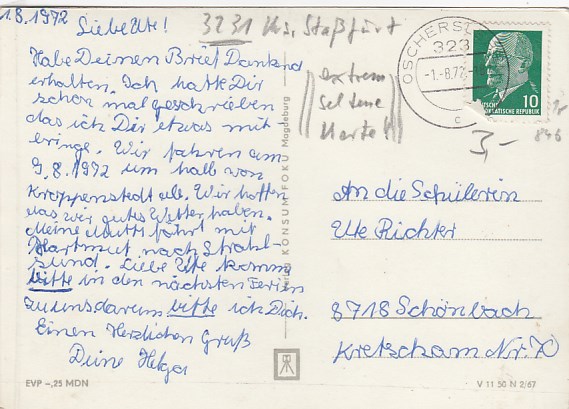 1.8.1972
Liebe Ute!
Habe Deinen Brief Dankend
erhalten. Ich hatte Dir
schon mal geschrieben
das ich Dir etwas mit
bringe. Wir fahren am
9.8.1972 um halb von
Kroppenstedt ab. Wir hoffen
das wir gutes Wetter haben.
Meine Mutti fährt mit
Hartmut nach Strahl-
sund. Liebe Ute komm
bitte in den nächsten Ferien
zu uns darum bitte ich Dich.
Einen Herzlichen Gruß
Deine Helga
EVP -,25 MDN
KONSUM FOKU Magdeburg
3231 Staßfurt
extrem
seltene
Karte!
OSCHERSL
323
-1.-8.72
c
10
DEUTSCHE
DEMOKRATISCHE REPUBLIK
3,-
846
An die Schülerin
Ute Richter
8718 Schönbach
Kretscham Nr. 70
V 11 50 N 2/67